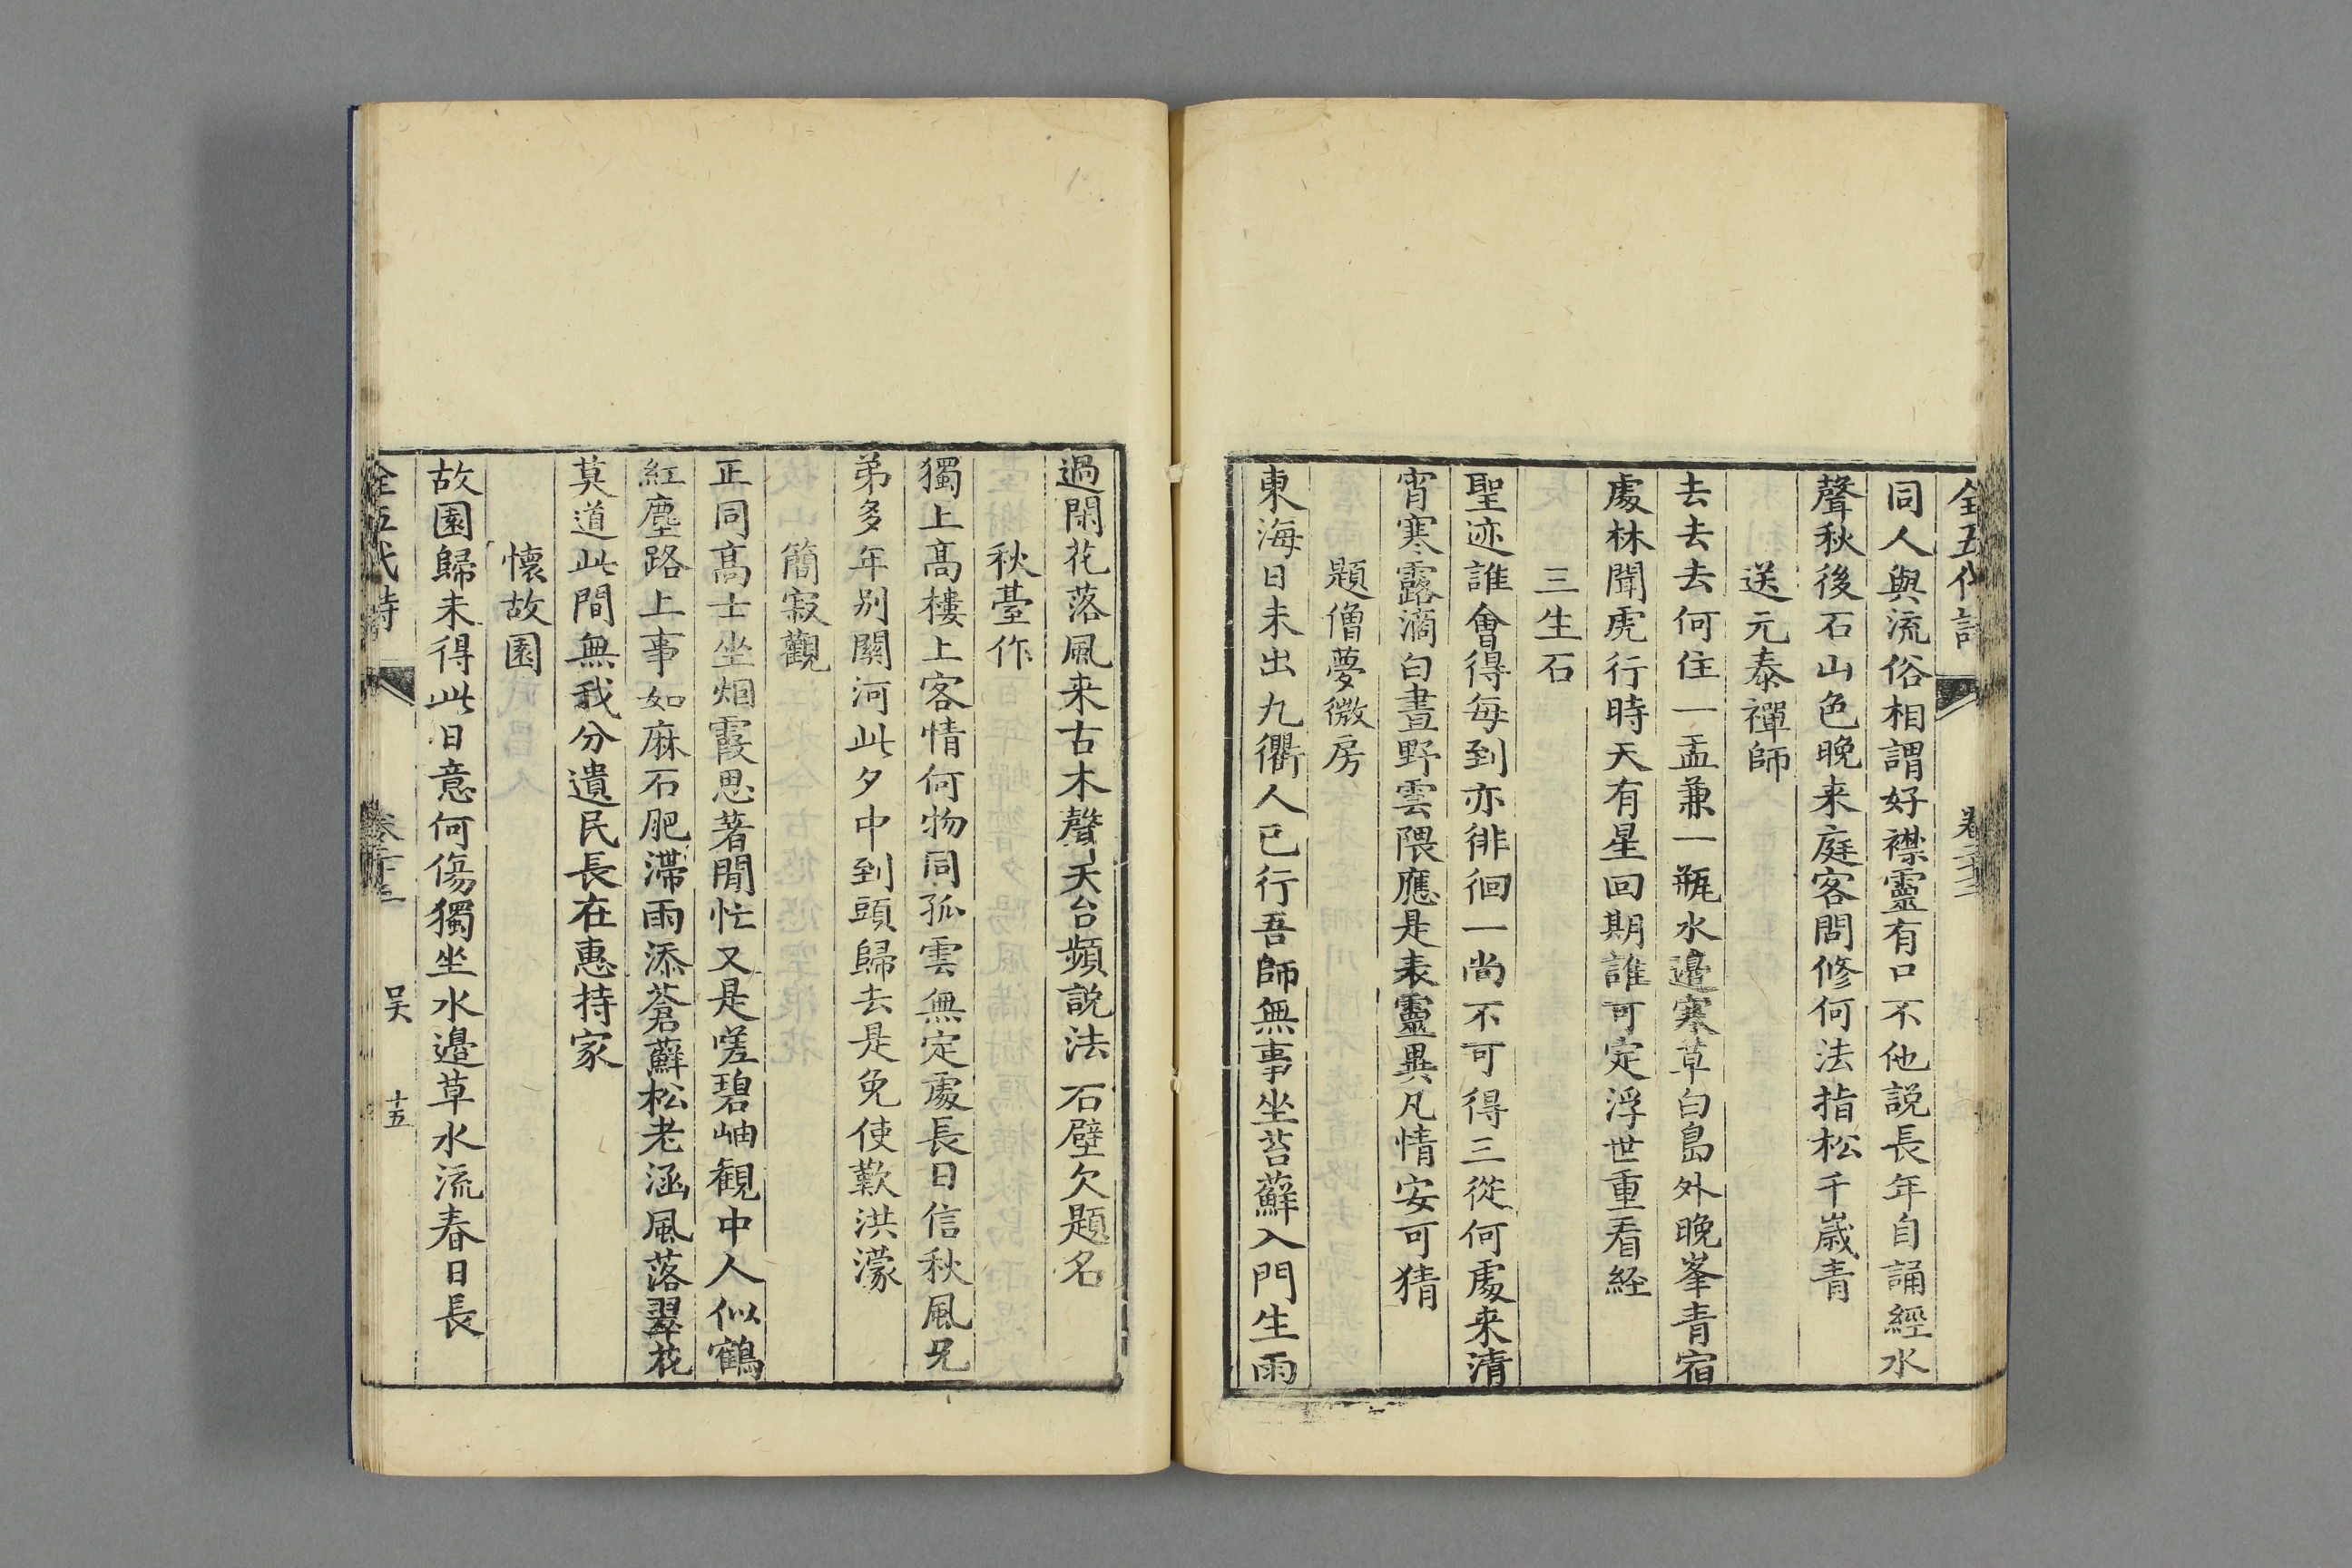 全五代詩
同人與流俗相謂好襟靈有口不他説長年自誦經水
聲秋後石山色晚来庭客問修何法指松千歲青
送元泰禪師
去去去何住一盂兼一瓶水邉寒草白島外晚峯青宿
處林聞虎行時天有星回期誰可定浮世重看経
三生石
聖迹誰會得每到亦徘徊一尚不可得三從何處来清
宵寒露滴白晝野雲隈應是表靈異凡情安可猜
題僧夢微房
東海日未出九衢人已行吾師無事坐苔蘚入門生雨
過閑花落風来古木聲天台頻説法石壁欠題名
秋臺作
獨上高樓上客情何物同孤雲無定處長日信秋風兄
弟多年别關河此夕中到頭歸去是免使歎洪濛
簡寂觀
正同高士坐烟霞思著閒忙又是嗟碧岫観中人似鶴
紅塵路上事如麻石肥滯雨添蒼蘚松老涵風落翠花
莫道此間無我分遺民長在惠持家
懷故園
故園歸未得此日意何傷獨坐水邉草水流春日長
全五代詩
吴
十五